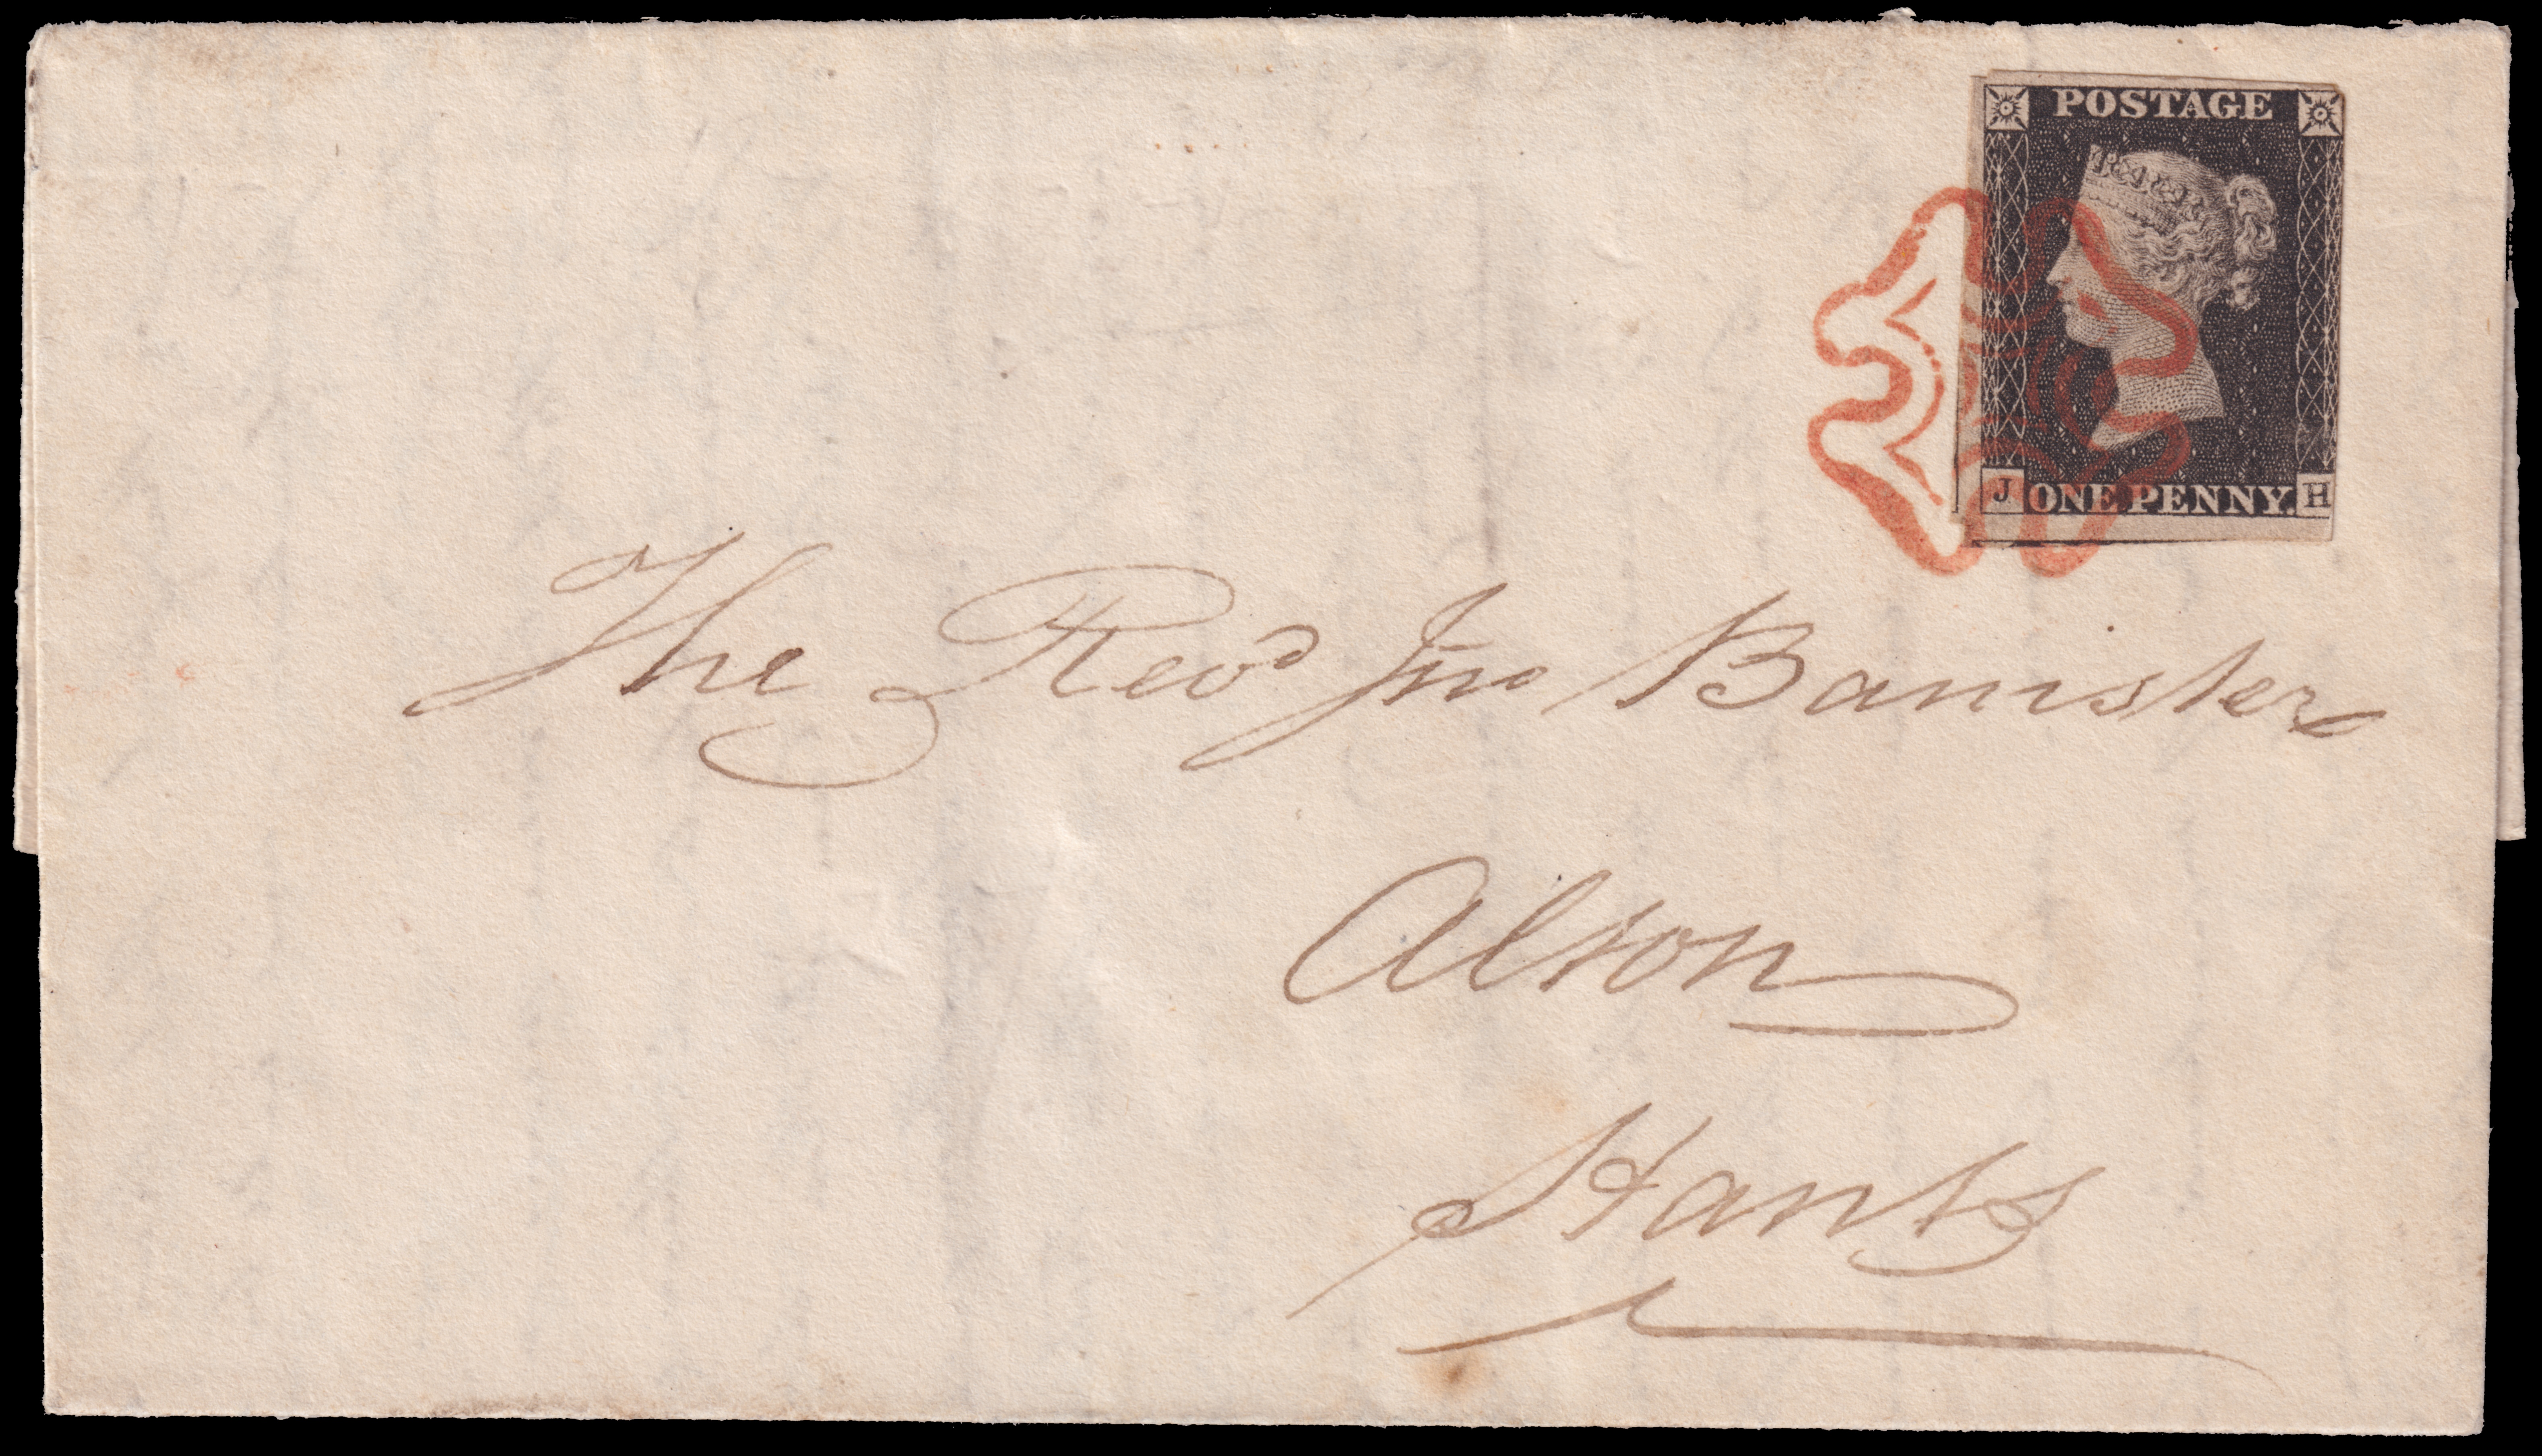 POSTAGE
J ONE PENNY. H
The Revd Jno Banister
Alton
Hants